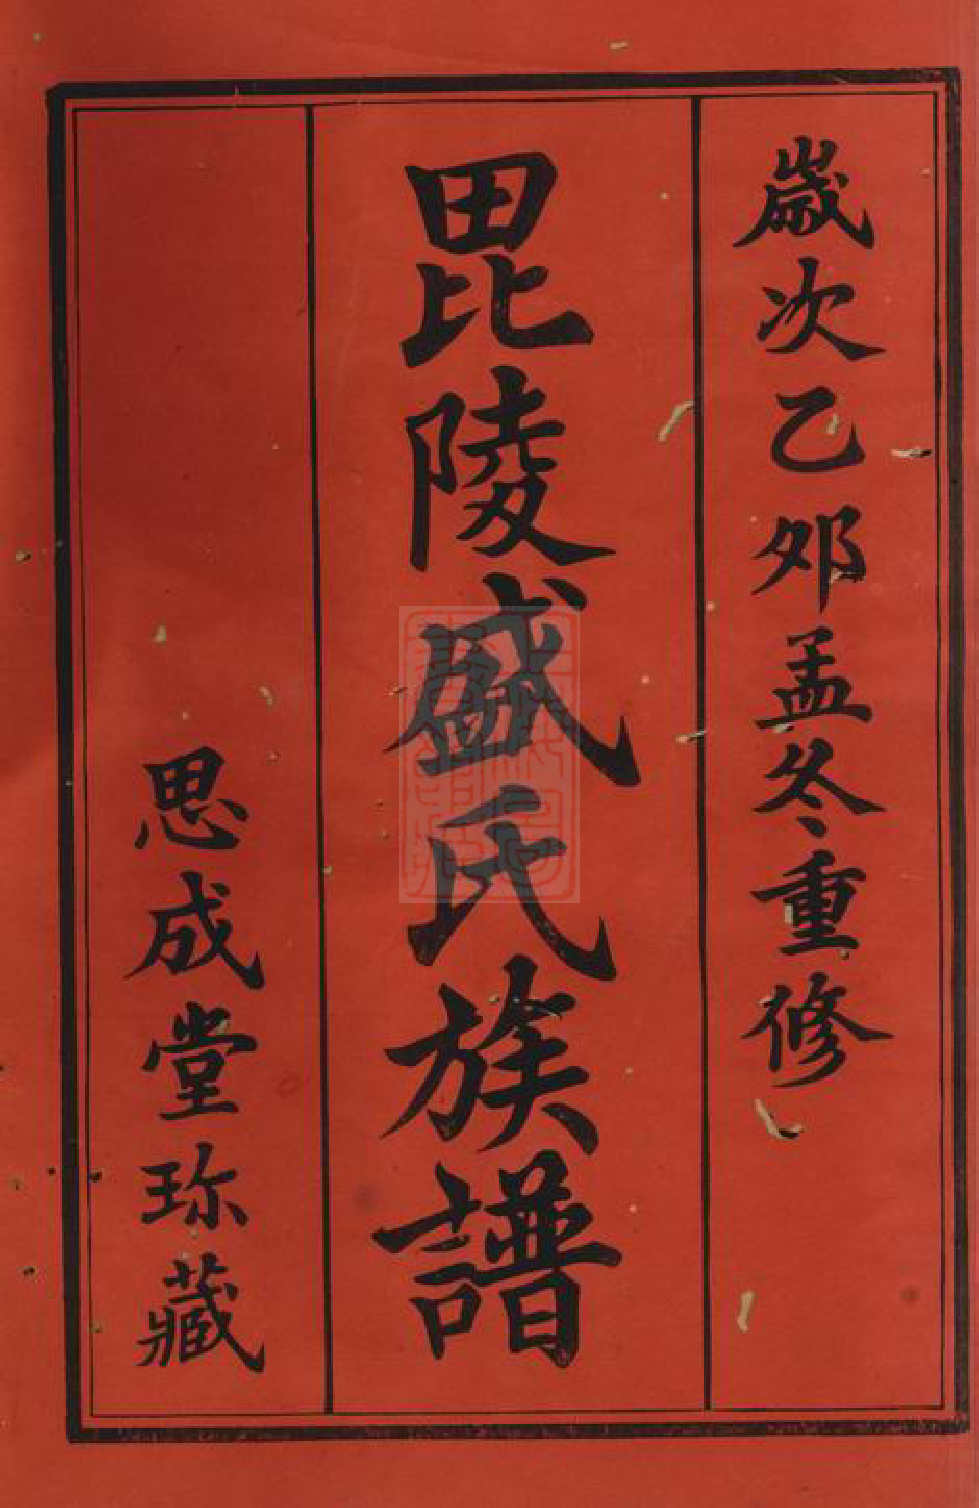 歲次乙卯孟冬重修
毘陵盛氏族譜
思成堂珍藏